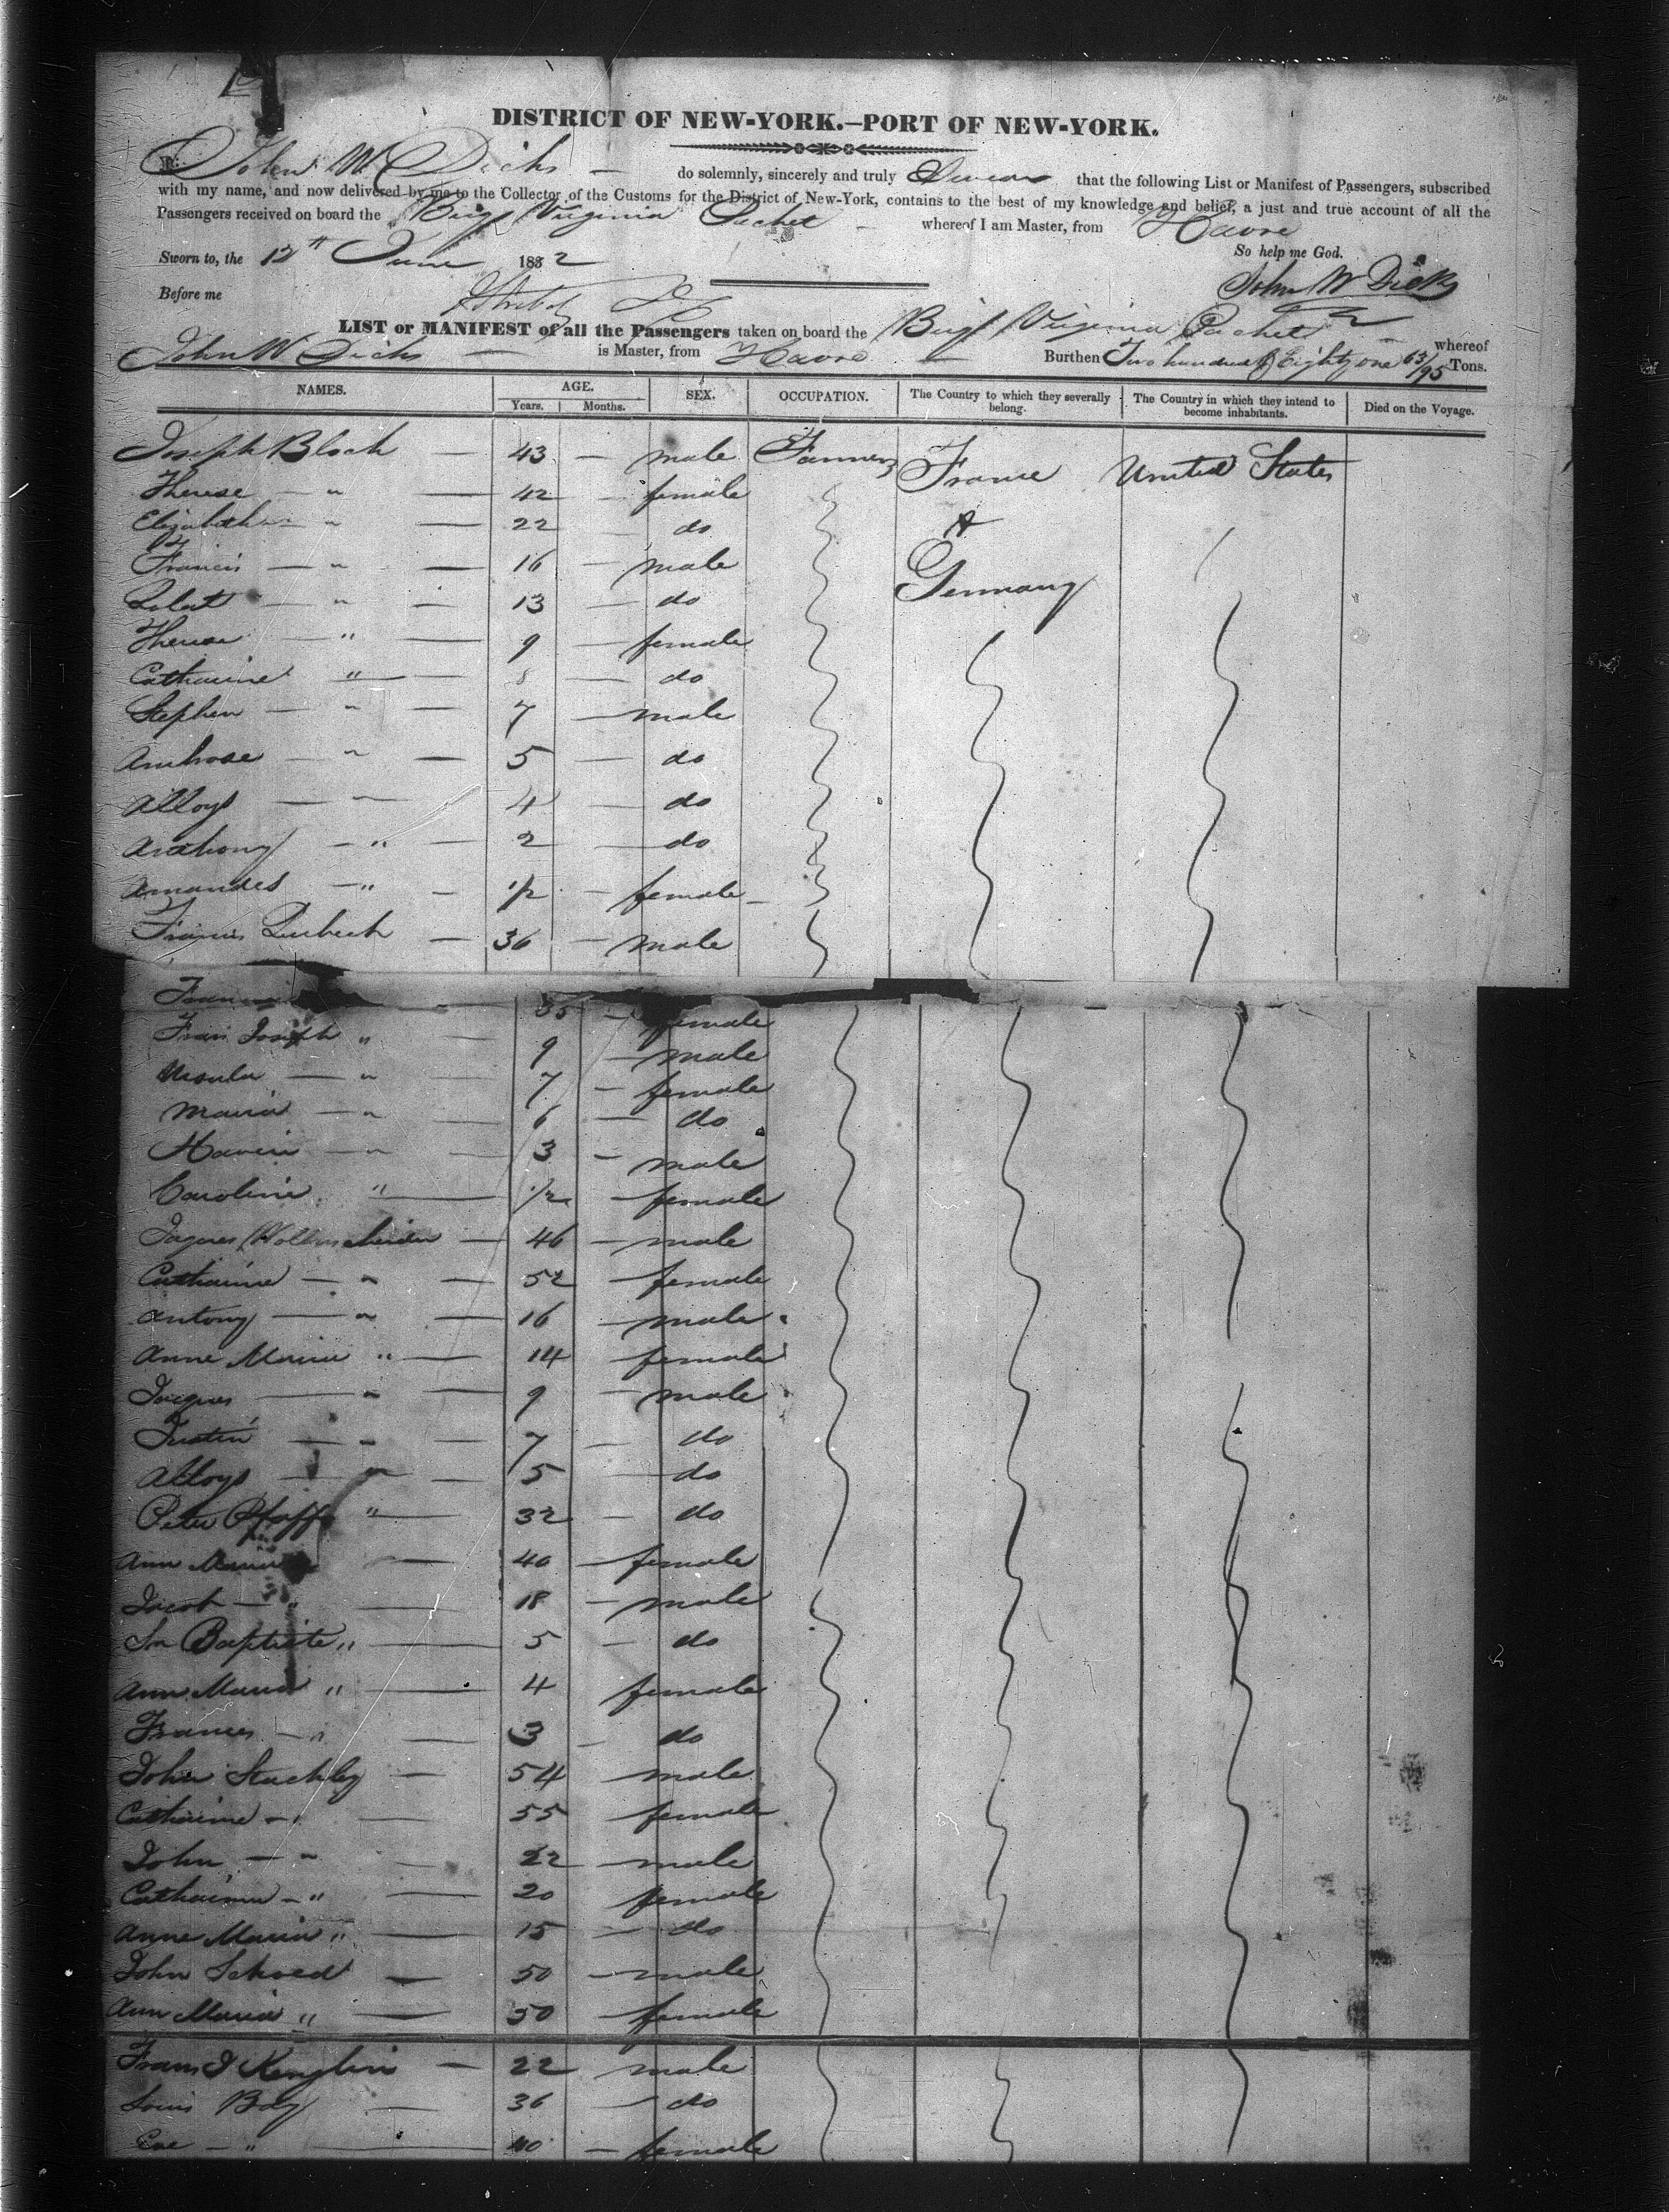 DISTRICT OF NEW-YORK.—PORT OF NEW-YORK.
I, John W Dicks do solemnly, sincerely and truly Swear that the following List or Manifest of Passengers, subscribed
with my name, and now delivered by me to the Collector of the Customs for the District of New-York, contains to the best of my knowledge and belief, a just and true account of all the
Passengers received on board the Brig Virginia Packet whereof I am Master, from Havre
So help me God.
Sworn to, the 12th June 1832
John W Dicks
Before me
LIST or MANIFEST of all the Passengers taken on board the Brig Virginia Packet whereof
John W Dicks is Master, from Havre Burthen Two hundred & Eighty one 63/95 Tons.
NAMES. AGE. SEX. OCCUPATION. The Country to which they severally belong. The Country in which they intend to become inhabitants. Died on the Voyage.
Years. Months.
Joseph Block — 43 — male Farmers France United States
Therese — " — 42 — female
Elizabeth " — 22 — do &
Francis — " — 16 — male Germany
— " — 13 — do
Therese — " — 9 — female
Catharine " — 8 — do
Stephen — " — 7 — male
Ambrose — " — 5 — do
Alloys — " 4 — do
Anthony — " — 2 — do
Amandes — " — 1/2 — female
Francis — 36 — male
35 — female
Fran Joseph " — 9 — male
Ursula — " — 7 — female
Maria — " — 6 — do
— " — 3 — male
Caroline " — 1/2 — female
Jaques — 46 — male
Catharine — " — 52 — female
Antony — " — 16 — male
Anne Maria " — 14 female
Jacques — " — 9 — male
Justin — " — 7 — do
Alloys — " — 5 — do
Peter Pfaff " — 32 — do
Ann Maria — 40 — female
Jacob — " — 18 — male
Jn Baptiste " — 5 — do
Ann Maria " — 4 female
Frances — " — 3 — do
John Stuchley — 54 — male
Catharine — " — 55 — female
John — " — 22 — male
Catharine — " — 20 female
Anne Maria " — 15 — do
John Schoed — 50 — male
Ann Maria " — 50 — female
Frans J — 22 male
Louis Boly — 36 — do
Eve — " — 40 — female